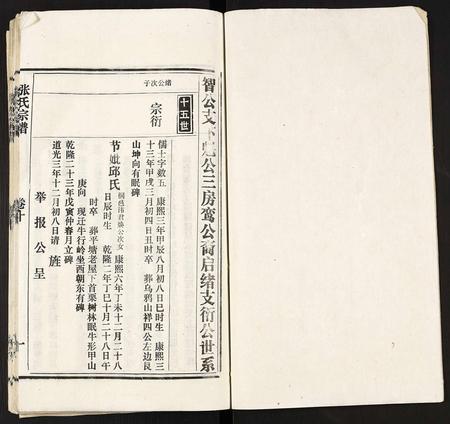 智公支下忠公三房鸾公裔启绪支衍公世系
十五世
绪公次子
宗衍
儒士字数五 康熙三年甲辰八月初八日巳时生 康熙三
十三年甲戌三月初四日丑时卒 葬乌鸦山祥四公左边艮
山坤向有眠碑
节孀邱氏 桐邑沛君焕公次女 康熙六年丁未十二月二十八
日辰时生 乾隆二年丁巳十月二十八日午
时卒 葬平塘老屋下首栗树林眠牛形甲山
庚向 现迁牛行岭坐西朝东有碑
乾隆二十三年戊寅仲春月立碑
道光三年十二月初八日请 旌
举报公呈
张氏宗谱
卷十
一